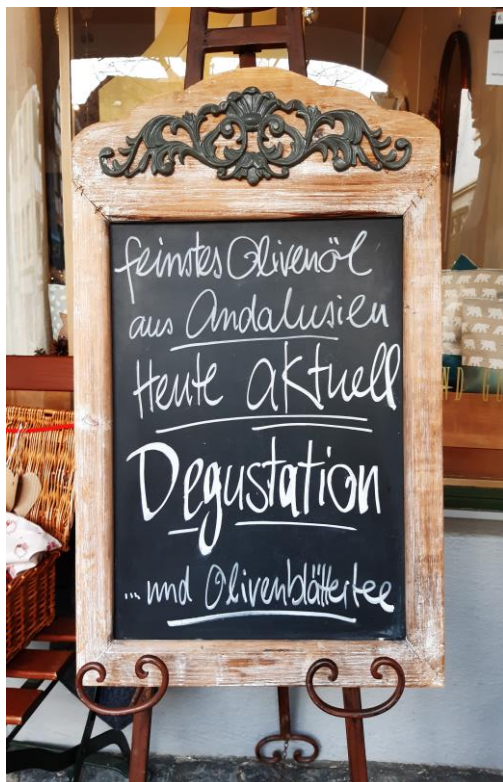 feinstes Olivenöl
aus Andalusien
Heute aktuell
Degustation
...und Olivenblättertee